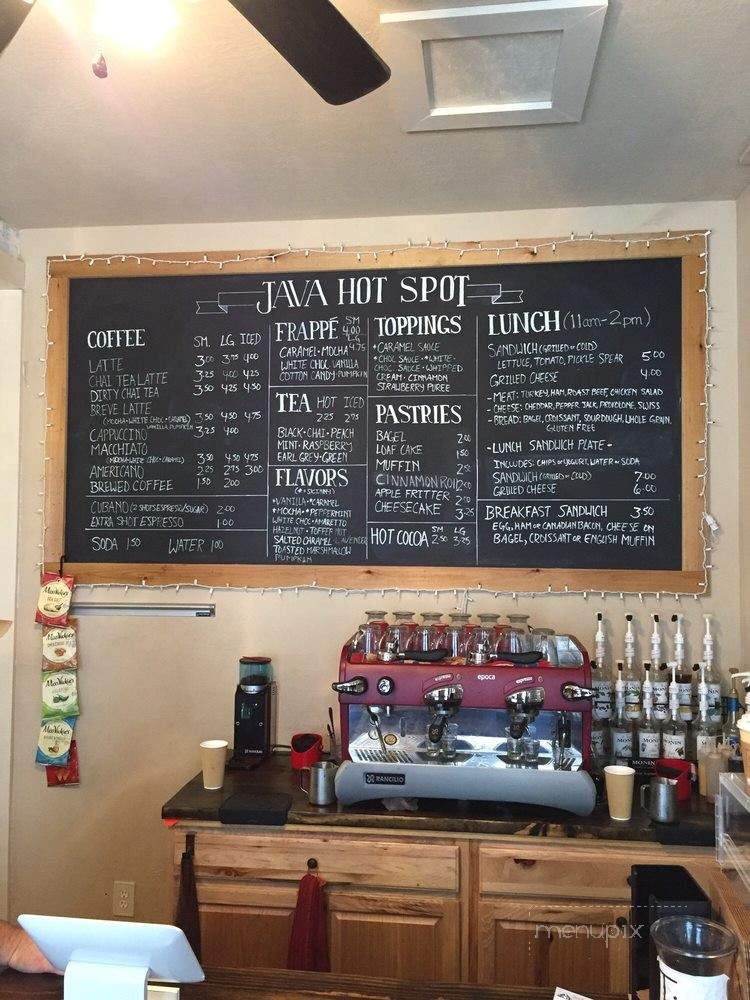 JAVA HOT SPOT
COFFEE SM. LG. ICED
LATTE 3.00 3.75 4.00
CHAI TEA LATTE 3.25 4.00 4.25
DIRTY CHAI TEA 3.50 4.25 4.50
BREVE LATTE
(MOCHA·WHITE CHOC·CARAMEL) 3.50 4.50 4.75
VANILLA, PUMPKIN
CAPPUCCINO 3.25 4.00
MACCHIATO
(MOCHA·WHITE CHOC·CARAMEL) 3.50 4.50 4.75
AMERICANO 2.25 2.75 3.00
BREWED COFFEE 1.50 2.00
CUBANO (2 SHOTS ESPRESSO/SUGAR) 2.00
EXTRA SHOT ESPRESSO 1.00
SODA 1.50 WATER 1.00
FRAPPÉ SM 4.00
LG 4.75
CARAMEL·MOCHA
WHITE CHOC. VANILLA
COTTON CANDY·PUMPKIN
TEA HOT ICED
2.25 2.75
BLACK·CHAI·PEACH
MINT·RASPBERRY
EARL GREY·GREEN
FLAVORS
(* = SKINNY)
*VANILLA·*CARAMEL
*MOCHA·*PEPPERMINT
WHITE CHOC·AMARETTO
HAZELNUT·TOFFEE NUT
SALTED CARAMEL·LAVENDER
TOASTED MARSHMALLOW
PUMPKIN
TOPPINGS
*CARAMEL SAUCE
*CHOC SAUCE·*WHITE·
CHOC. SAUCE·WHIPPED
CREAM·CINNAMON
STRAWBERRY PUREE
PASTRIES
BAGEL 2.00
LOAF CAKE 1.50
MUFFIN 2.50
CINNAMON ROLL 2.00
APPLE FRITTER 2.00
CHEESECAKE 3.25
HOT COCOA SM 2.50 LG 3.25
LUNCH (11am-2pm)
SANDWICH (GRILLED OR COLD)
LETTUCE, TOMATO, PICKLE SPEAR 5.00
GRILLED CHEESE 4.00
- MEAT: TURKEY, HAM, ROAST BEEF, CHICKEN SALAD
- CHEESE: CHEDDAR, PEPPER JACK, PROVOLONE, SWISS
- BREAD: BAGEL, CROISSANT, SOURDOUGH, WHOLE GRAIN,
GLUTEN FREE
- LUNCH SANDWICH PLATE -
INCLUDES: CHIPS OR YOGURT, WATER OR SODA
SANDWICH (GRILLED OR COLD) 7.00
GRILLED CHEESE 6.00
BREAKFAST SANDWICH 3.50
EGG, HAM OR CANADIAN BACON, CHEESE ON
BAGEL, CROISSANT OR ENGLISH MUFFIN
epoca
RANCILIO
MONIN
MONIN
MONIN
menupix